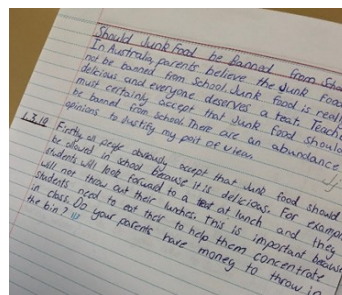 Should Junk Food be Banned from
In Australia, parents believe the Junk Food
not be banned from School. Junk food is
delicious and everyone deserves a teat.
must certainly accept that Junk food should
be banned from school. There are an abundance
opinions to Justify my poit of view.
Firstly all
obviously accept that Junk food should
be allowed in school because it is delicious. For
students will look forward to a at lunch and they
will not throw out their lunches. This is important
students need to eat their to help them concentrate
in class. Do your parents have money to throw in
the bin?